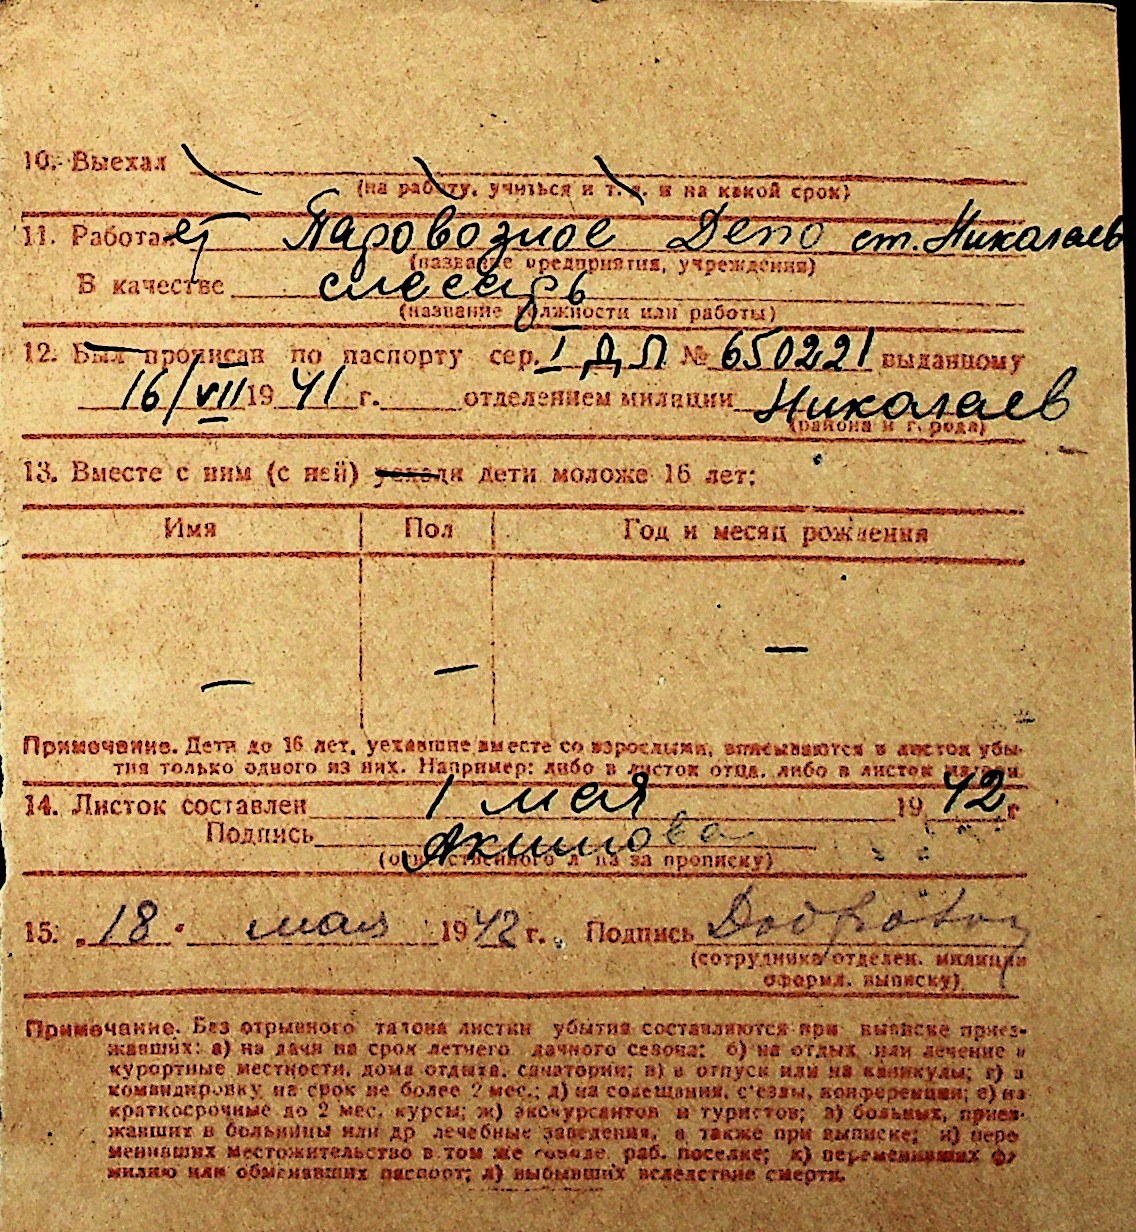 10. Выехал
(на работу, учиться и т. д. и на какой срок)
11. Работает Паровозное Депо ст. Николаев
(название предприятия, учреждения)
В качестве слесарь
(название должности или работы)
12. Был прописан по паспорту сер. I ДЛ № 650221 выданному
16/VII 1941 г. отделением милиции Николаев
(района и города)
13. Вместе с ним (с ней) уехали дети моложе 16 лет:
Имя Пол Год и месяц рождения
— — —
Примечание. Дети до 16 лет, уехавшие вместе со взрослыми, вписываются в листок убы-
тия только одного из них. Например: либо в листок отца, либо в листок матери.
14. Листок составлен 1 мая 1942 г
Подпись Акимова
(ответственного лица за прописку)
15. „18" мая 1942 г. Подпись
(сотрудника отделен. милиции
оформ. выписку)
Примечание. Без отрывного талона листки убытия составляются при выписке приез-
жавших: а) на дачи на срок летнего дачного сезона; б) на отдых или лечение в
курортные местности, дома отдыха, санатории; в) в отпуск или на каникулы; г) в
командировку на срок не более 2 мес.; д) на совещания, с'езды, конференции; е) на
краткосрочные до 2 мес. курсы; ж) экскурсантов и туристов; з) больных, приез-
жавших в больницы или др лечебные заведения, а также при выписке; и) пере
менивших местожительство в том же городе, раб. поселке; к) переменивших фа
милию или обменявших паспорт; л) выбывших вследствие смерти.